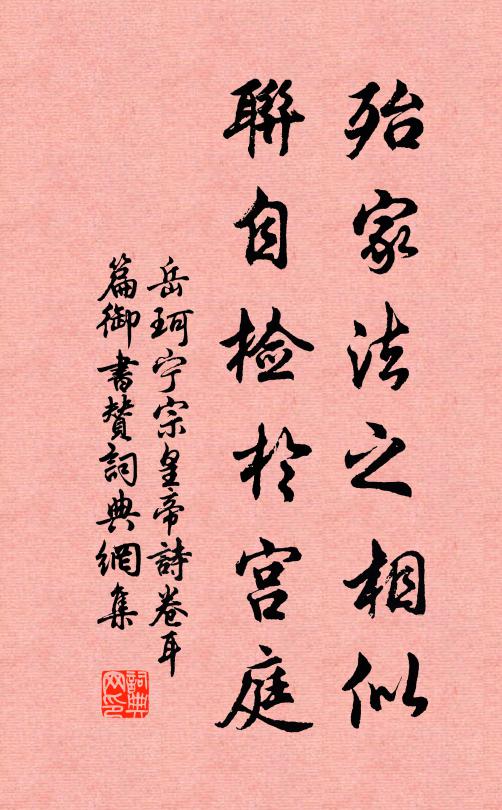 殆家法之相似
聯自检於宫庭
岳珂宁宗皇帝詩卷耳
篇御書贊詞典網集
詞典网印